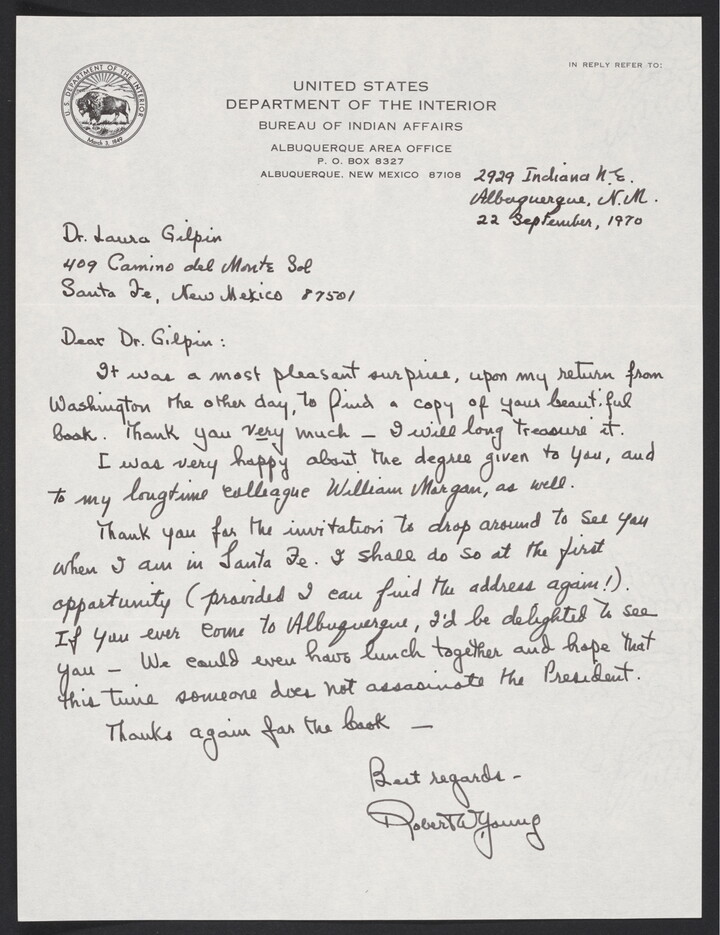 IN REPLY REFER TO:
U.S. DEPARTMENT OF THE INTERIOR
March 3, 1849
UNITED STATES
DEPARTMENT OF THE INTERIOR
BUREAU OF INDIAN AFFAIRS
ALBUQUERQUE AREA OFFICE
P. O. BOX 8327
ALBUQUERQUE, NEW MEXICO 87108
2929 Indiana N.E.
Albuquerque, N.M.
22 September, 1970
Dr. Laura Gilpin
409 Camino del Monte Sol
Santa Fe, New Mexico 87501
Dear Dr. Gilpin:
It was a most pleasant surprise, upon my return from
Washington the other day, to find a copy of your beautiful
book. Thank you very much — I will long treasure it.
I was very happy about the degree given to you, and
to my longtime colleague William Morgan, as well.
Thank you for the invitation to drop around to see you
when I am in Santa Fe. I shall do so at the first
opportunity (provided I can find the address again!).
If you ever come to Albuquerque, I'd be delighted to see
you — We could even have lunch together and hope that
this time someone does not assasinate the President.
Thanks again for the book —
Best regards -
Robert W Young